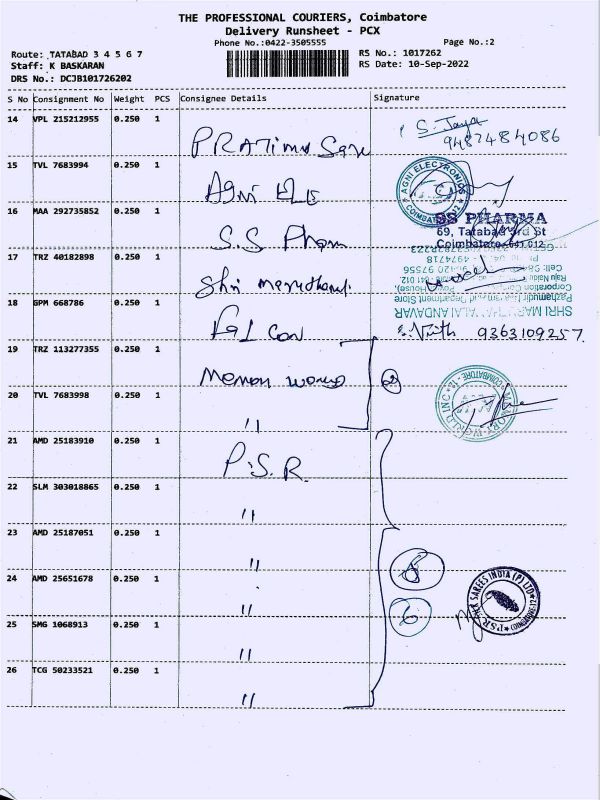 THE PROFESSIONAL COURIERS, Coimbatore
Delivery Runsheet - PCX
Phone No.:0422-3505555 Page No.:2
Route: TATABAD 3 4 5 6 7 RS No.: 1017262
Staff: K BASKARAN RS Date: 10-Sep-2022
DRS No.: DCJB101726202
S No Consignment No Weight PCS Consignee Details Signature
14 VPL 215212955 0.250 1
S. Jaya
9487484086
15 TVL 7683994 0.250 1 Agni Ele
AGNI ELECTRONICS
COIMBATORE-12
16 MAA 292735852 0.250 1 S.S Pham
SS PHARMA
69, Tatabad 3rd St
Coimbatore-641 012
17 TRZ 40182898 0.250 1
18 GPM 668786 0.250 1 Falcon
9363109257
19 TRZ 113277355 0.250 1
20 TVL 7683998 0.250 1 "
MEMORY WORLD INC
COIMBATORE - 12
21 AMD 25183910 0.250 1 P.S.R.
22 SLM 303018865 0.250 1 "
23 AMD 25187051 0.250 1 "
24 AMD 25651678 0.250 1 "
6
PSR SAREES INDIA (P) LTD
COIMBATORE-12
25 SMG 1068913 0.250 1 "
26 TCG 50233521 0.250 1 "